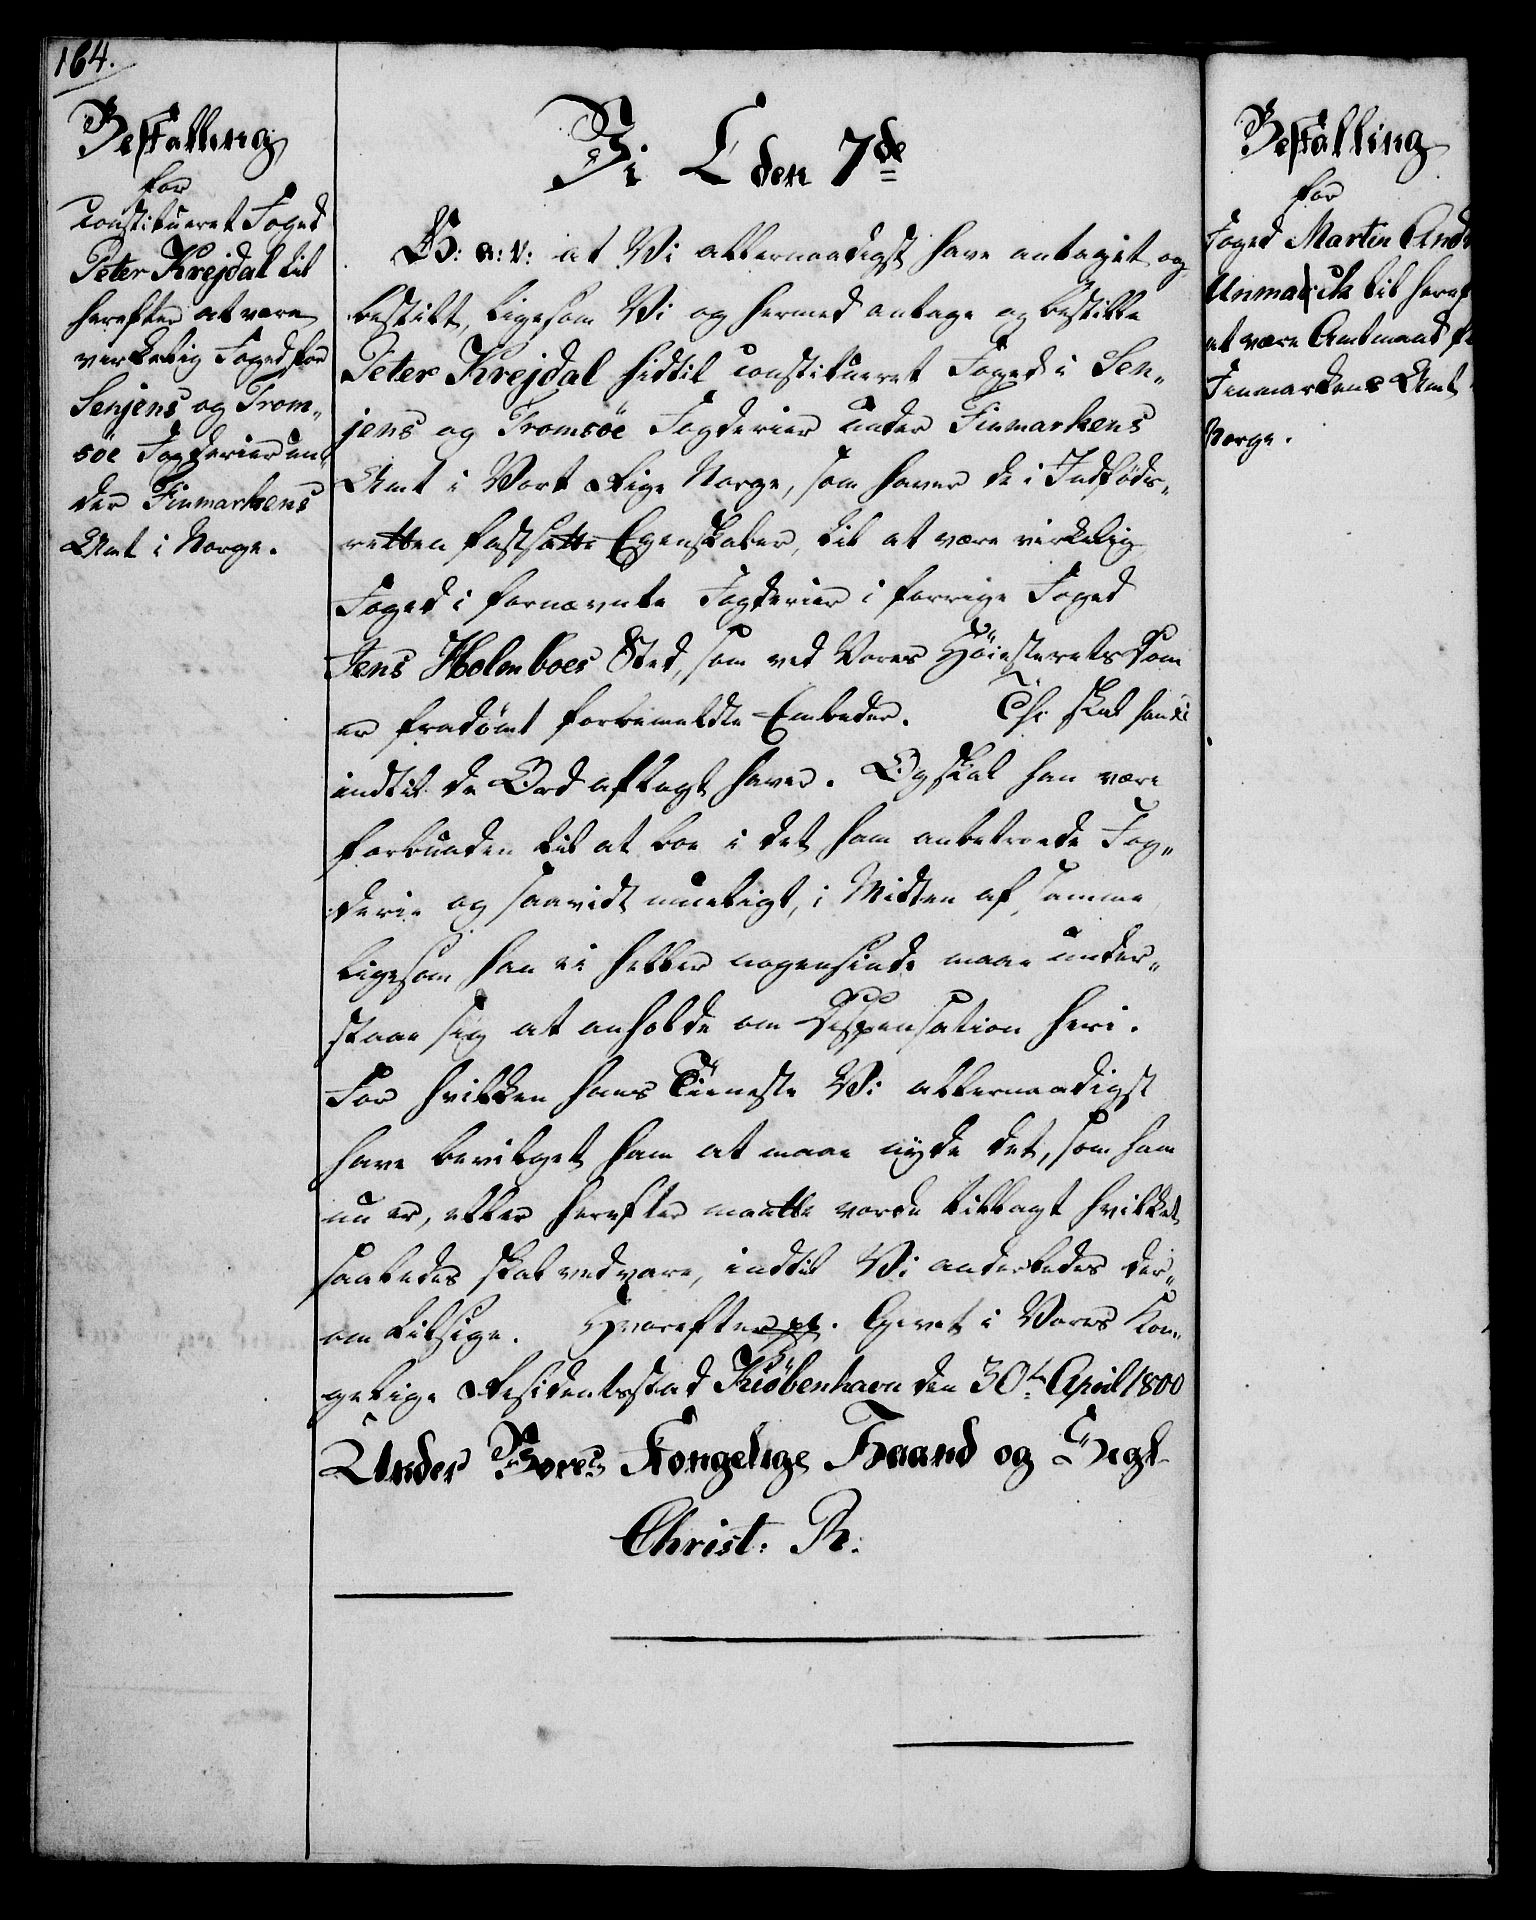 164.
Bestalling
for
Constitueret Foged
Peter Krejdal til
herefter at være
virkelig Foged for
Senjens og Trom„
söe Fogderier un„
der Finmarkens
Amt i Norge.
Vi C den 7de
G: A: V: at Vi allernaadigst have antaget og
bestilt, ligesom Vi og hermed antage og bestille
Peter Krejdal hidtil constitueret Foged i Sen„
jens og Tromsöe Fogderier under Finmarkens
Amt i Vort Rige Norge, som haver de i Indföds„
retten fastsatte Egenskaber, til at være virkelig
Foged i fornævnte Fogderier i forrige Foged
Jens Holmboes Sted, som ved Vores Höiesterets Dom
er fradömt forbemeldte Embeder. Thi skal han
indtil de Ord aflagt haver. Og skal han være
forbunden til at boe i det ham anbetroede Fog„
derie og saavidt mueligt, i Midten af samme
ligesom han ei heller nogensinde maae under„
staae sig at anholde om Dispensation heri.
For hvilken hans Tieneste Vi allernaadigst
have bevilget ham at maae nyde det, som ham
nu er, eller herefter maatte vorde tillagt hvilket
saaledes skal vedvare, indtil Vi anderledes der„
om tilsige. Hvorefter pp. Givet i Vores Kon„
gelige Residentsstad Kiöbenhavn den 30te April 1800
Under Vores Kongelige Haand og Segl
Christ. R.
Bestalling
for
Foged Martin And
Unmack til heref
at være Amtmand f
Finmarkens Amt
Norge.